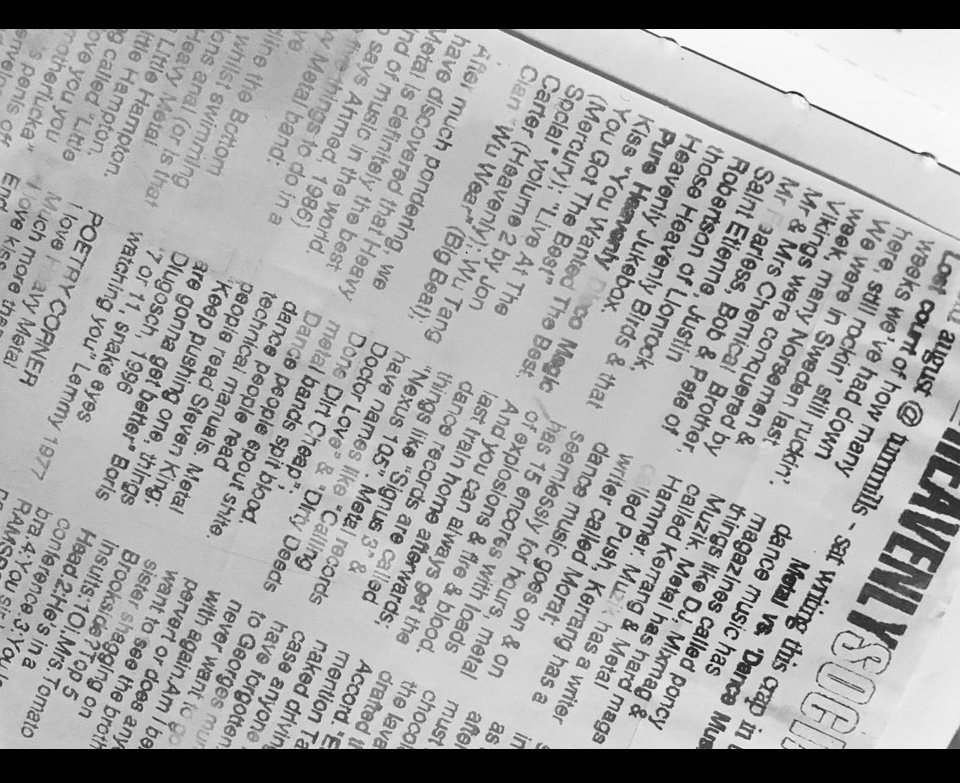 HEAVENLY SOCI
august @ turnmills - sat writing this crap in
court of how many
weeks we've had down
here, still rockin' still ruckin'.
We were in Sweden last
week, many Norsemen &
Vikings were conquered by
Mr & Mrs Chemical Brother,
Mr Fearless, Bob & Pete or
Saint Etienne, Justin
Robertson of, Lionrock,
those Heavenly Birds & that
Heavenly Jukebox
Pure Heavenly Disco Magic
Kiss "You Wanted The Best
You Got The Best"
(Mercury); "Live At The
Social" volume 2 by Jon
Carter (Heavenly); Wu Tang
Clan "Wu Wear" (Big Beat);
After much pondering, we
have discovered that Heavy
Metal is definitely the best
kind of music in the world
so says Ahmed, 1986)
things to do in a Heavy
Metal band;
line the Bottom
whilst swimming
anal (or is that
Heavy Metal
Little Hampton
Little Hampton.
called "Little
love you you
penis or
Metal vs. 'Dance Mus
dance music has
magazines called poncy
things like DJ, Mixmag &
Muzik. Metal has hard mags
called Kerrang & Metal
Hammer. Muzik has a writer
called Push, Kerrang has a
writer called Morat;
dance music goes on & on
seemlessly for hours, metal
has 15 encores with loads
or explosions & fire & blood.
And you can always get the
last train home afterwards;
dance records are called
things like "Signus 3" &
"Nexus 1Q5". Metal records
have names like "Calling
Doctor Love" & "Dirty Deeds
Done Dirt Cheap";
metal bands spit blood,
Dance people spout shite.
dance people read
technical manuals. Metal
people read Steven King;
"Keep pushing one, things
are gonna get better" Boris
Dlugosch, 1996
7 or 11, snake eyes
watching you" Lemmy 1977
POETRY CORNER
I love Heavy Metal
Much more than
I love kiss
End
in
as
after
must
chocol
the lava
drafted
Accord. "E
mention Ta
naked driving
case anyone
have forgotten
to Georges mu
never want to go
with again. Am I be
pervert or does any
want to see the broth
sister shagging on
Brookside? Top 5
Insults: 1)O.I.Ms Tomato
Head. 2:He's in a
conference. 3:You
bra. 4:You si
RAMSE